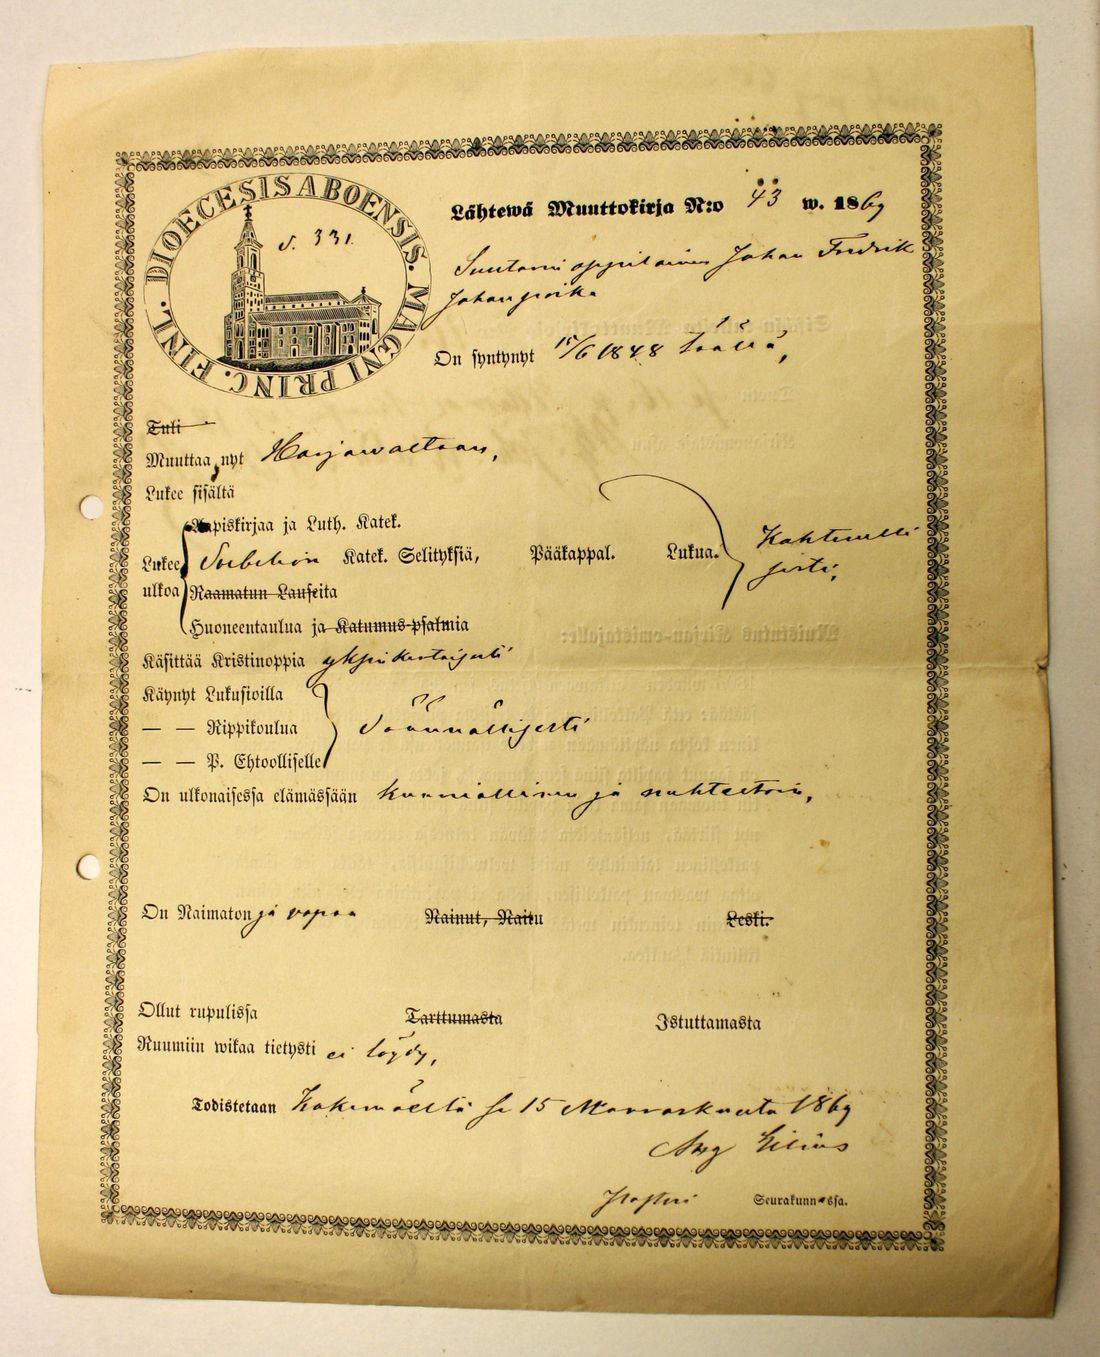 DIOECESIS ABOENSIS. MAGNI PRINC. FINL.
S. 331.
Lähtewä Muuttokirja N:o 43 w. 1869
Suutarin oppilainen Johan Fredrik
Johanpoika
On syntynyt 15/6 1848 täällä,
Tuli
Muuttaa nyt Harjawaltaan,
Lukee sisältä
Aapiskirjaa ja Luth. Katek.
Lukee Katek. Selityksiä, Pääkappal. Lukua.
ulkoa Raamatun Lauseita
Huoneentaulua ja Katumus-psalmia
Käsittää Kristinoppia yksinkertaisesti
Käynyt Lukusioilla
— — Rippikoulua Säännöllisesti
— — P. Ehtoolliselle
On ulkonaisessa elämässään kunniallinen ja nuhteetoin,
On Naimaton ja vapaa Nainut, Naitu Leski.
Ollut rupulissa Tarttumasta Istuttamasta
Ruumiin wikaa tietysti ei löydy,
Todistetaan Kokemäellä se 15 Marraskuuta 1869
Seurakunnassa.